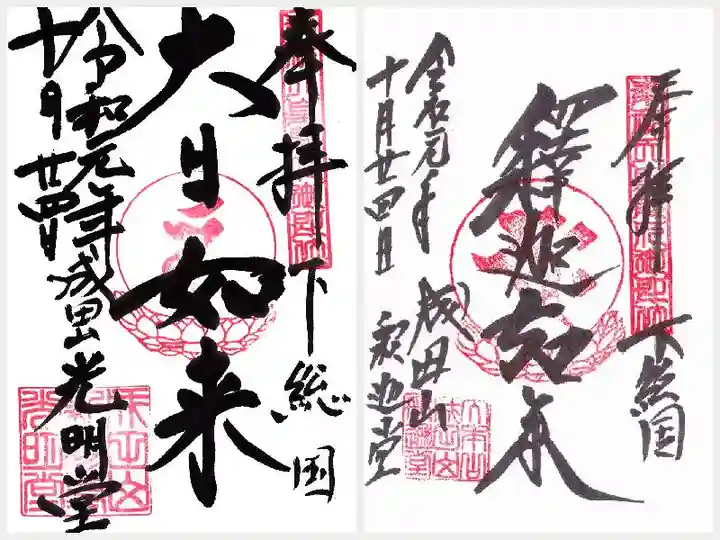 奉拝 下総国
大日如来
令和元年
十月廿四日 成田山 光明堂
奉拝 下総国
釋迦如来
令和元年
十月廿四日 成田山 釈迦堂